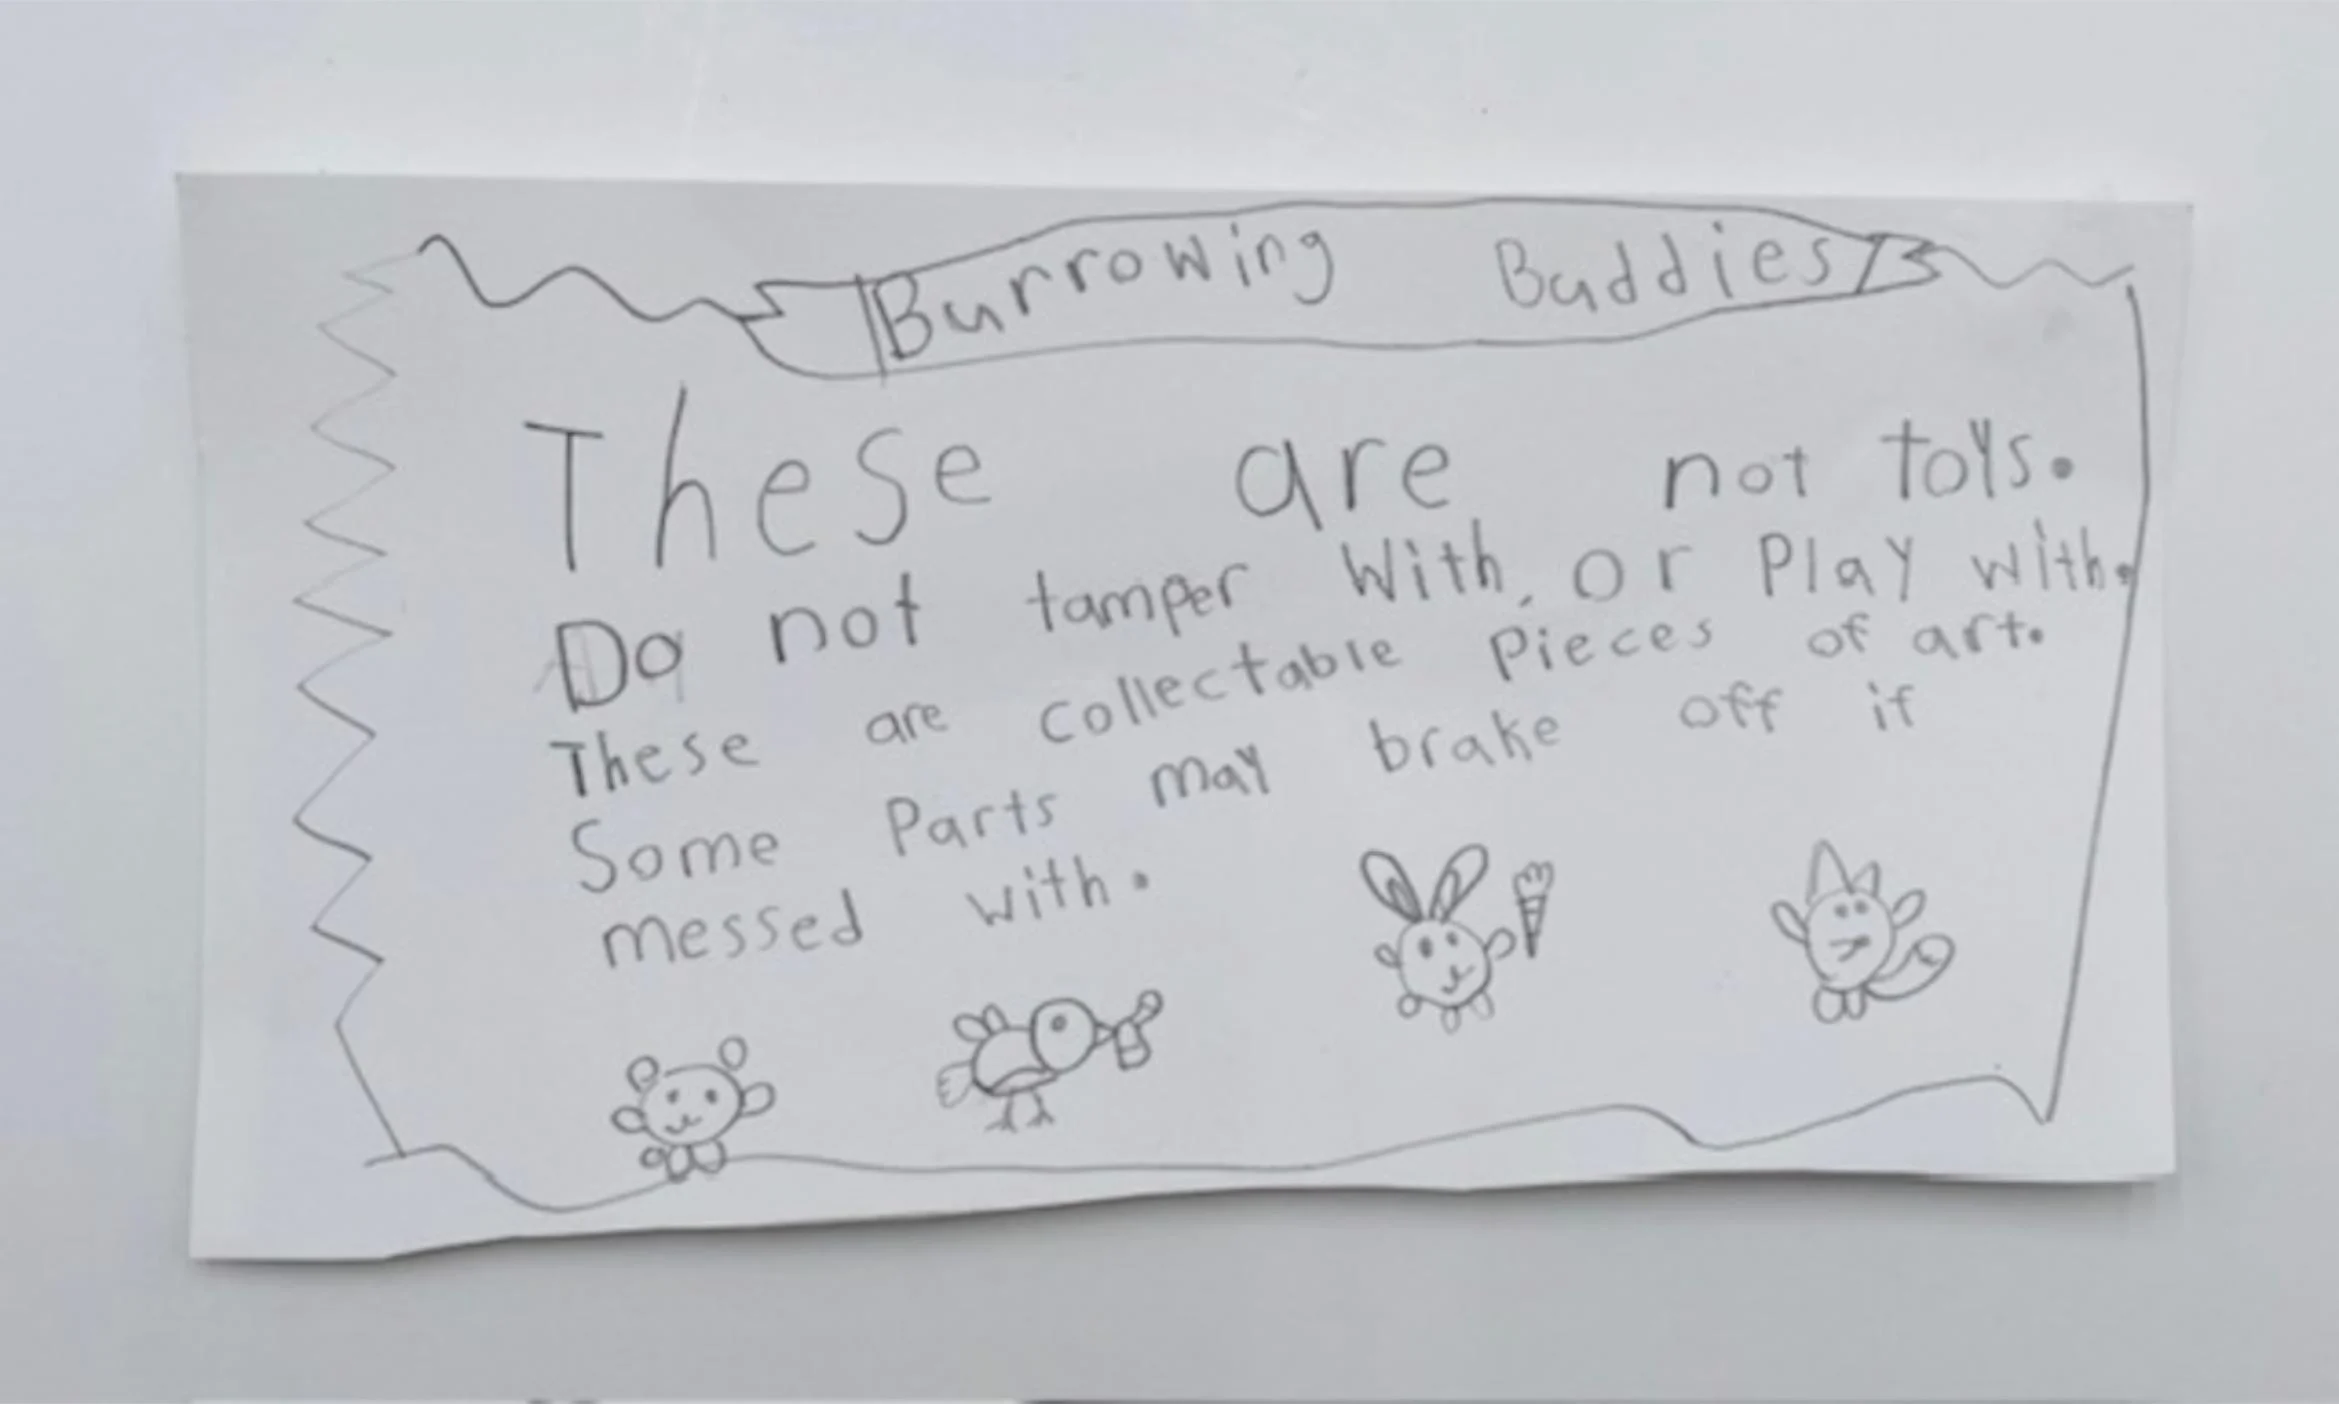 Burrowing Buddies
These are not toys.
Do not tamper With, or Play with.
These are collectable Pieces of art.
Some Parts may brake off if
messed with.